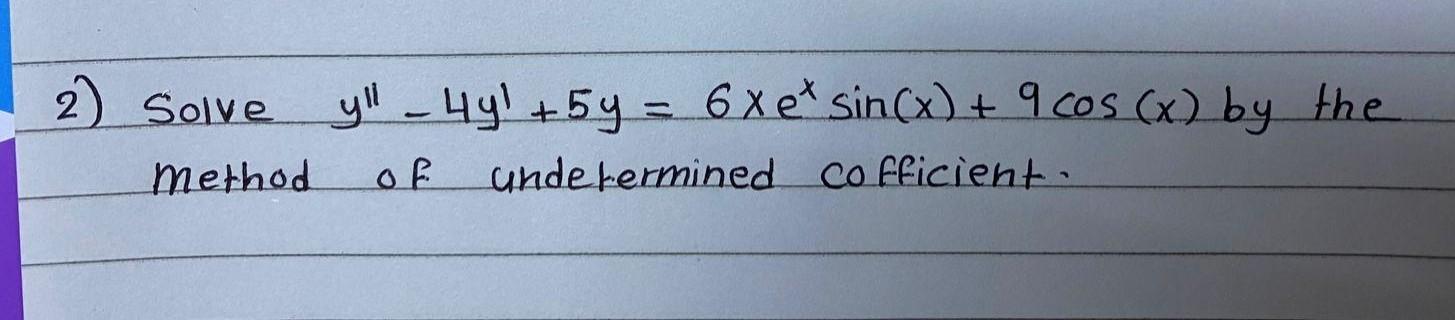 2) Solve y" - 4y' + 5y = 6xeˣ sin(x) + 9 cos (x) by the
method of undetermined cofficient.